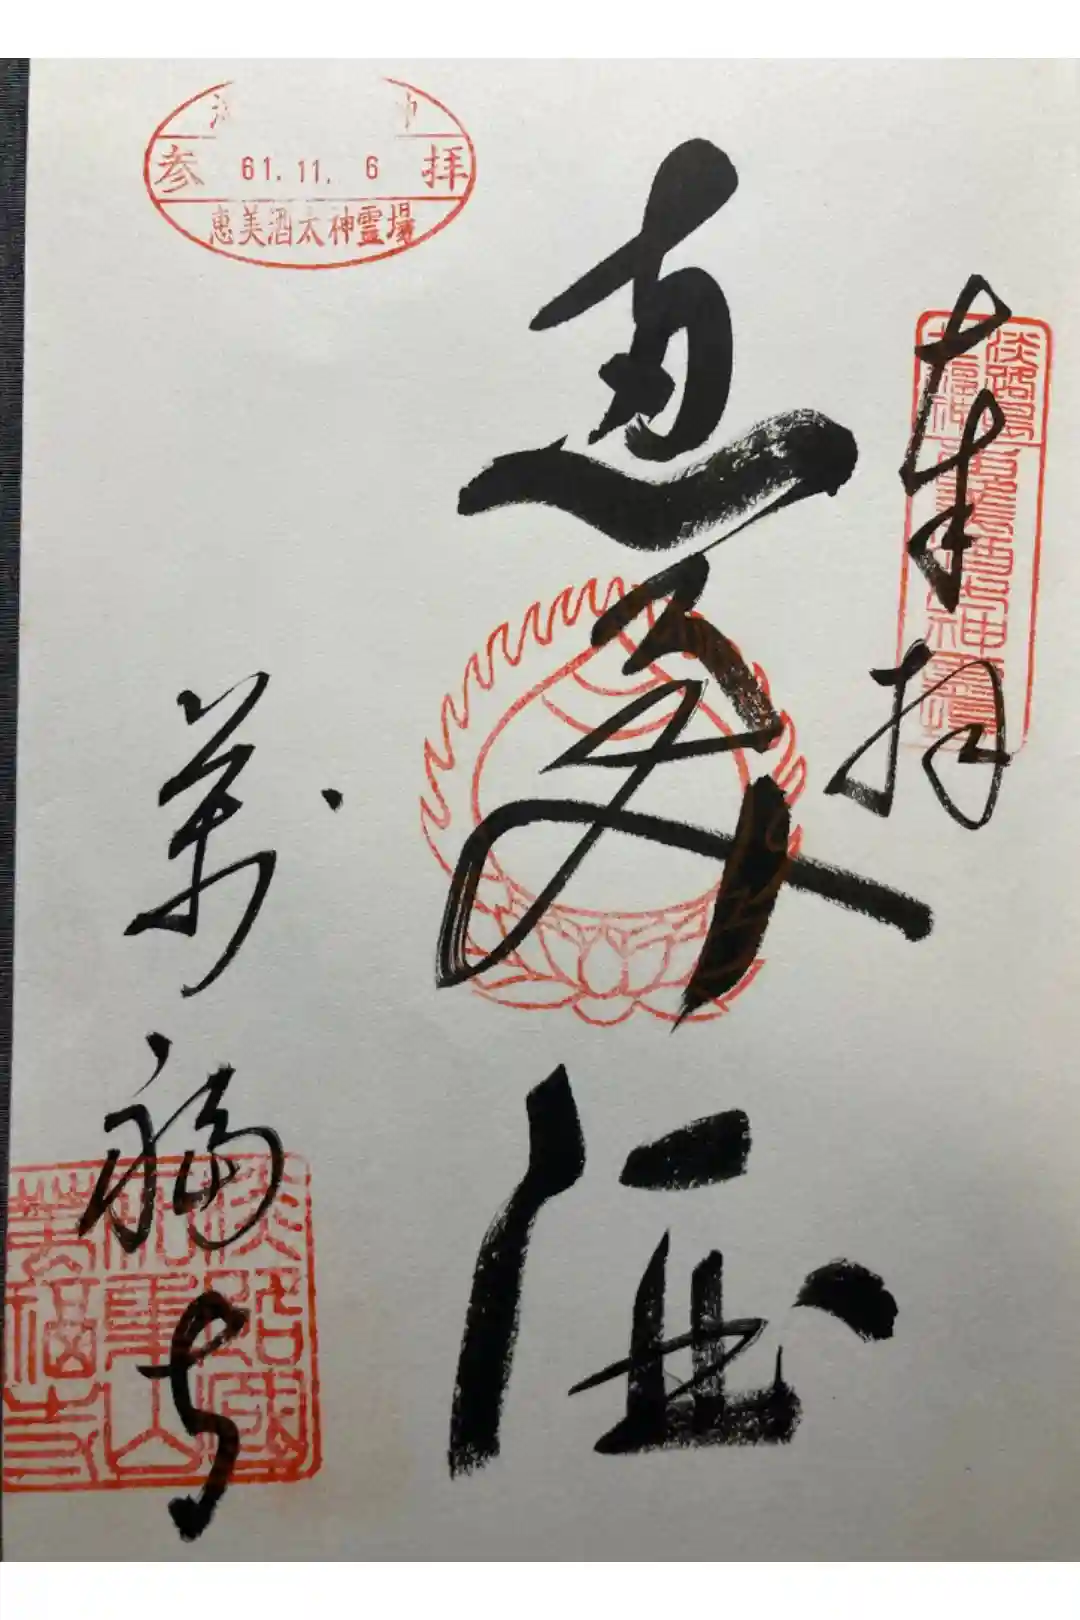 奉拝
淡路島
七福神
恵美酒太神霊場
恵美酒
萬福寺
参 61.11. 6 拝
恵美酒太神霊場
淡路國
萬福寺